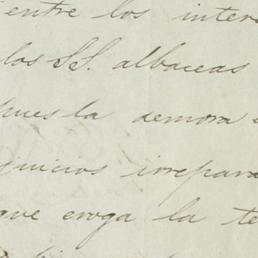 entre los inter
los SS. albaceas
pues la demora
juicios irrepara
que eroga la te